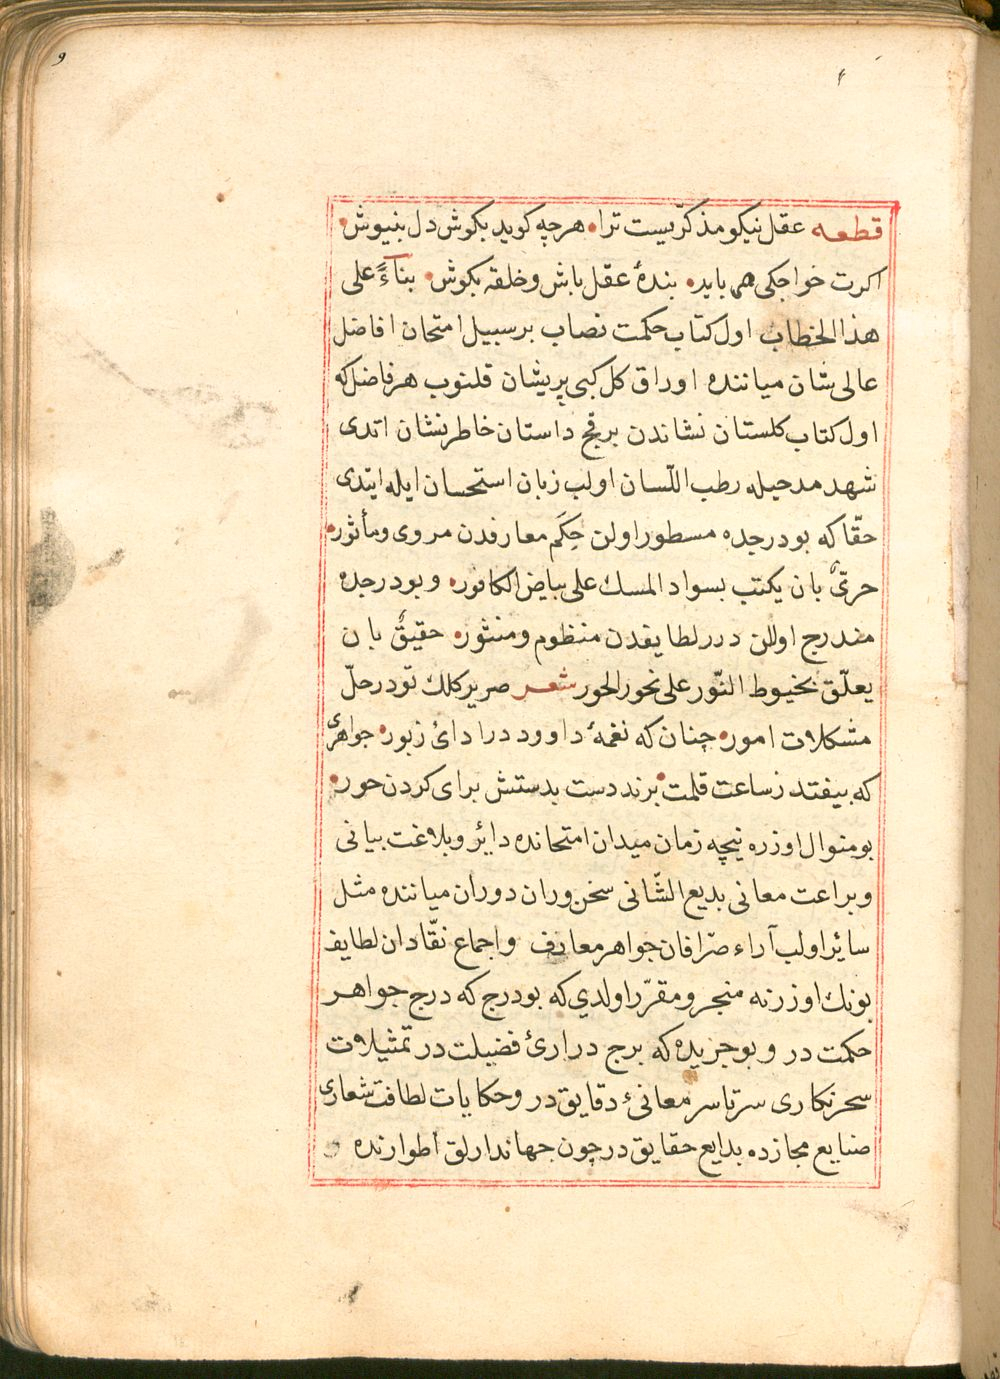 ۹
قطعه عقل نیکو مذکّریست ترا هرچه کوید بکوش دل بنیوش
اکرت خواجکی همی باید بندهٔ عقل باش و حلقه بکوش بناءً علی
هذا الخطاب اول کتاب حکمت نصاب برسبیل امتحان افاضل
عالی شان میاننده اوراق کل کبی پریشان قلنوب هر فاضل که
اول کتاب کلستان نشاندن برقچ داستان خاطرنشان اتدی
شهد مدحیله رطب اللّسان اولب زبان استحسان ایله ایتدی
حقّا که بو درجده مسطور اولن حِکَم معارفدن مروی و مأثور
حریٌّ بان یکتب بسواد المسك علی بیاض الکافور و بو درجده
مندرج اولان درر لطایفدن منظوم و منثور حقیقٌ بان
یعلّق بخیوط النّور علی نحور الحور شعر صریر کلك تو در حلّ
مشکلات امور چنان که نغمهٔ داوود در ادائ زبور جواهری
که بیفتد ز ساعت قلمت برند دست بدستش برای کردن حور
بو منوال اوزره نیچه زمان میدان امتحانده دایر و بلاغت بیانی
و براعت معانی بدیع الشّانی سخن وران دوران میاننده مثل
سائر اولب آراء صرّافان جواهر معارف و اجماع نقّادان لطایف
بونك اوزرنه منجر و مقرّر اولدی که بو درج که درج جواهر
حکمت در و بو جریده که برج دراریٔ فضیلت در تمثیلات
سحرنکاری سرتاسر معانیٔ دقایق در و حکایات لطافت شعاری
صنایع مجازده بدایع حقایق در چون جهاندارلق اطوارنده